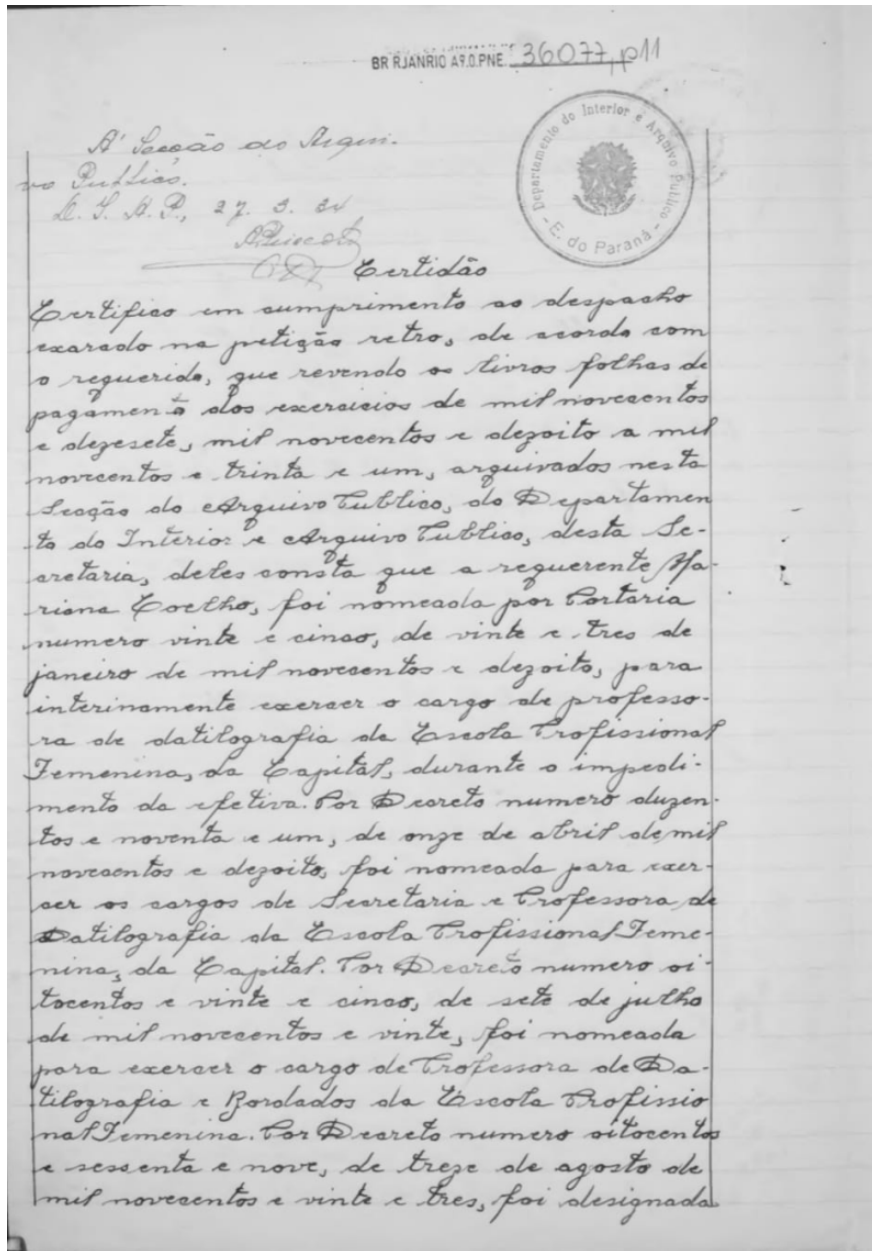 BR RJANRIO A9.0.PNE. 36077, p11
Departamento do Interior e Arquivo Publico
- E. do Paraná -
A' Secção do Arqui-
vo Publico.
D. I. A. P., 27. 3. 34
Certidão
Certifico em cumprimento ao despacho
exarado na petição retro, de acordo com
o requerido, que revendo os livros folhas de
pagamento dos exercicios de mil novecentos
e dezesete, mil novecentos e dezoito a mil
novecentos e trinta e um, arquivados nesta
Secção do Arquivo Publico, do Departamen
to do Interior e Arquivo Publico, desta Se-
cretaria, deles consta que a requerente Ma-
riana Coelho, foi nomeada por Portaria
numero vinte e cinco, de vinte e tres de
janeiro de mil novecentos e dezoito, para
interinamente exercer o cargo de professo-
ra de datilografia da Escola Profissional
Femenina, da Capital, durante o impedi-
mento da efetiva. Por Decreto numero duzen-
tos e noventa e um, de onze de abril de mil
novecentos e dezoito, foi nomeada para exer-
cer os cargos de Secretaria e Professora de
Datilografia da Escola Profissional Feme-
nina, da Capital. Por Decreto numero oi-
tocentos e vinte e cinco, de sete de julho
de mil novecentos e vinte, foi nomeada
para exercer o cargo de Professora de Da-
tilografia e Bordados da Escola Profissio
nal Femenina. Por Decreto numero oitocentos
e sessenta e nove, de treze de agosto de
mil novecentos e vinte e tres, foi designada